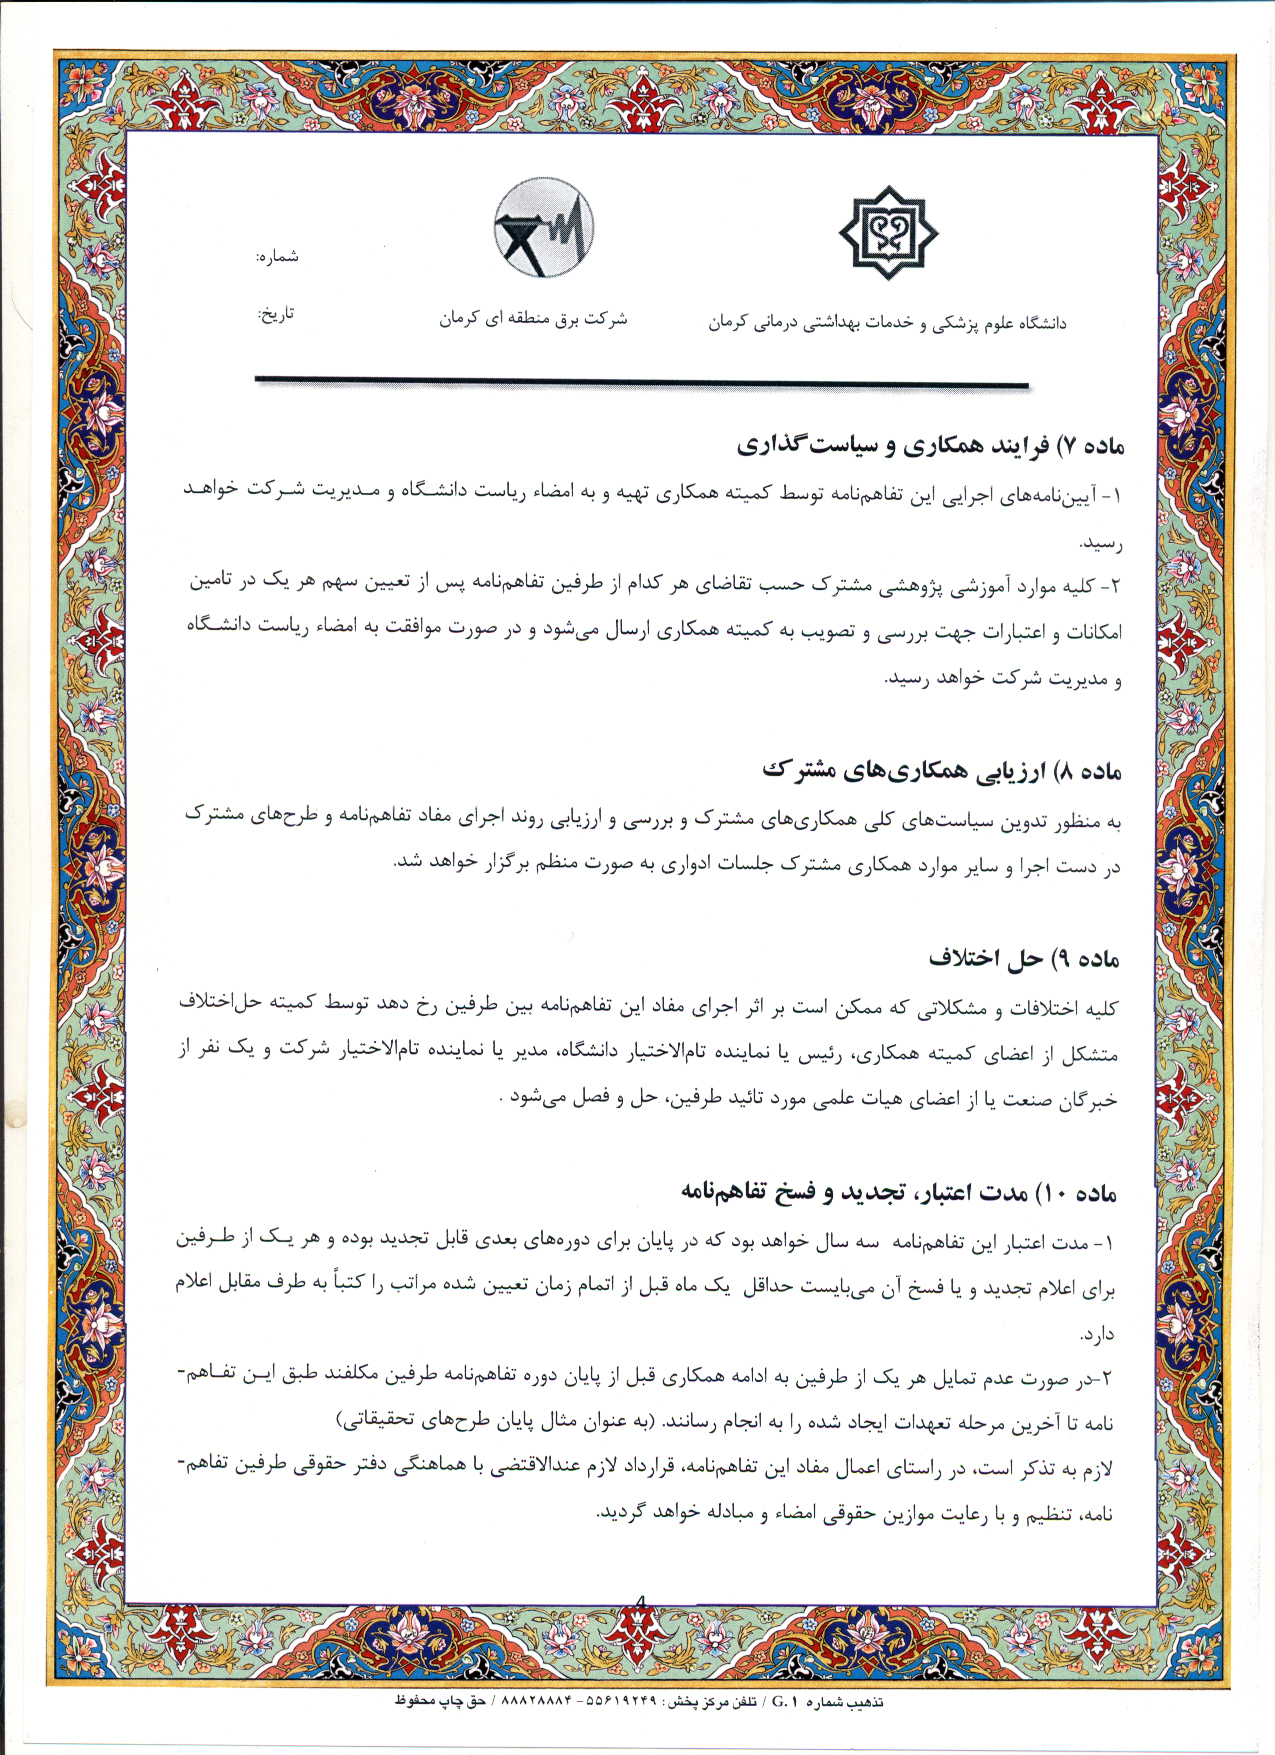 شماره:
تاریخ:
شرکت برق منطقه ای کرمان
دانشگاه علوم پزشکی و خدمات بهداشتی درمانی کرمان
ماده ۷) فرایند همکاری و سیاست‌گذاری
۱- آیین‌نامه‌های اجرایی این تفاهم‌نامه توسط کمیته همکاری تهیه و به امضاء ریاست دانشگاه و مدیریت شرکت خواهد
رسید.
۲- کلیه موارد آموزشی پژوهشی مشترک حسب تقاضای هر کدام از طرفین تفاهم‌نامه پس از تعیین سهم هر یک در تامین
امکانات و اعتبارات جهت بررسی و تصویب به کمیته همکاری ارسال می‌شود و در صورت موافقت به امضاء ریاست دانشگاه
و مدیریت شرکت خواهد رسید.
ماده ۸) ارزیابی همکاری‌های مشترک
به منظور تدوین سیاست‌های کلی همکاری‌های مشترک و بررسی و ارزیابی روند اجرای مفاد تفاهم‌نامه و طرح‌های مشترک
در دست اجرا و سایر موارد همکاری مشترک جلسات ادواری به صورت منظم برگزار خواهد شد.
ماده ۹) حل اختلاف
کلیه اختلافات و مشکلاتی که ممکن است بر اثر اجرای مفاد این تفاهم‌نامه بین طرفین رخ دهد توسط کمیته حل‌اختلاف
متشکل از اعضای کمیته همکاری، رئیس یا نماینده تام‌الاختیار دانشگاه، مدیر یا نماینده تام‌الاختیار شرکت و یک نفر از
خبرگان صنعت یا از اعضای هیات علمی مورد تائید طرفین، حل و فصل می‌شود .
ماده ۱۰) مدت اعتبار، تجدید و فسخ تفاهم‌نامه
۱- مدت اعتبار این تفاهم‌نامه سه سال خواهد بود که در پایان برای دوره‌های بعدی قابل تجدید بوده و هر یک از طرفین
برای اعلام تجدید و یا فسخ آن می‌بایست حداقل یک ماه قبل از اتمام زمان تعیین شده مراتب را کتباً به طرف مقابل اعلام
دارد.
۲-در صورت عدم تمایل هر یک از طرفین به ادامه همکاری قبل از پایان دوره تفاهم‌نامه طرفین مکلفند طبق این تفاهم-
نامه تا آخرین مرحله تعهدات ایجاد شده را به انجام رسانند. (به عنوان مثال پایان طرح‌های تحقیقاتی)
لازم به تذکر است، در راستای اعمال مفاد این تفاهم‌نامه، قرارداد لازم عندالاقتضی با هماهنگی دفتر حقوقی طرفین تفاهم-
نامه، تنظیم و با رعایت موازین حقوقی امضاء و مبادله خواهد گردید.
4
تذهیب شماره G.۱ / تلفن مرکز پخش : ۵۵۶۱۹۲۴۹ - ۸۸۸۲۸۸۸۴ / حق چاپ محفوظ